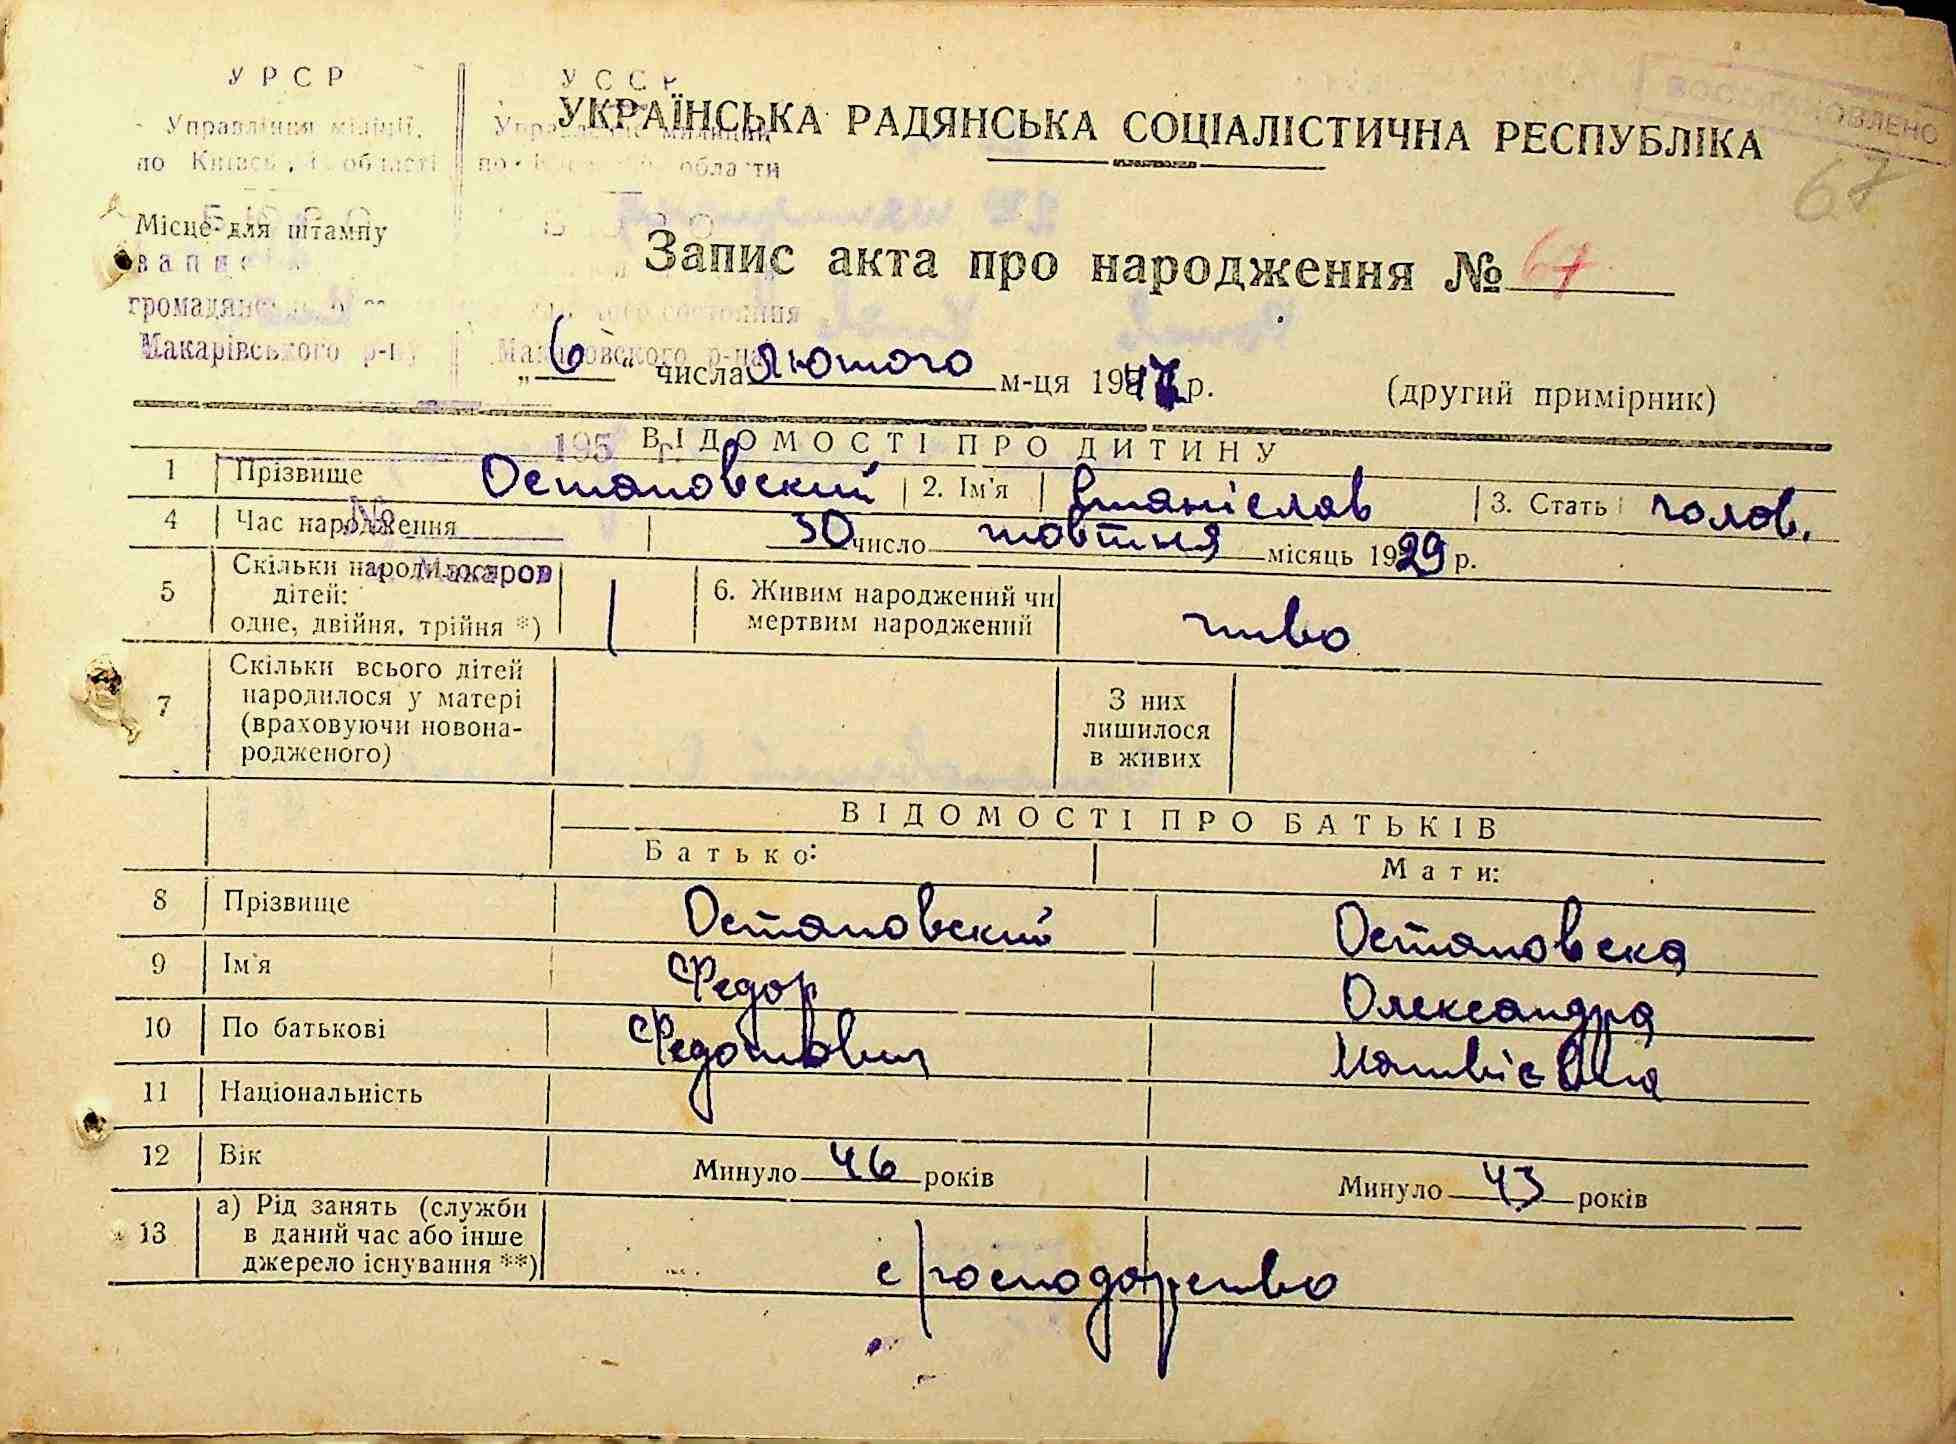 УРСР УССР
Управління міліції, Управление милиции
по Київській області по Киевской области
УКРАЇНСЬКА РАДЯНСЬКА СОЦІАЛІСТИЧНА РЕСПУБЛІКА
ВОССТАНОВЛЕНО
67
Місце для штампу
Запис акта про народження № 67
Макарівського р-ну Макаровского р-на
"6" числа лютого м-ця 1947 р. (другий примірник)
195 г.
ВІДОМОСТІ ПРО ДИТИНУ
1 Прізвище Остаповский 2. Ім'я Станіслав 3. Стать чолов.
№
4 Час народження 30 число жовтня місяць 1929 р.
5 Скільки народилося дітей: одне, двійня, трійня *) 1 6. Живим народжений чи мертвим народжений живо
м. Макаров
7 Скільки всього дітей народилося у матері (враховуючи новона-родженого) З них лишилося в живих
ВІДОМОСТІ ПРО БАТЬКІВ
Батько: Мати:
8 Прізвище Остаповский Остаповска
9 Ім'я Федор Олександра
10 По батькові Федотович Матвієвна
11 Національність
12 Вік Минуло 46 років Минуло 43 років
13 а) Рід занять (служби в даний час або інше джерело існування **) с/господарство